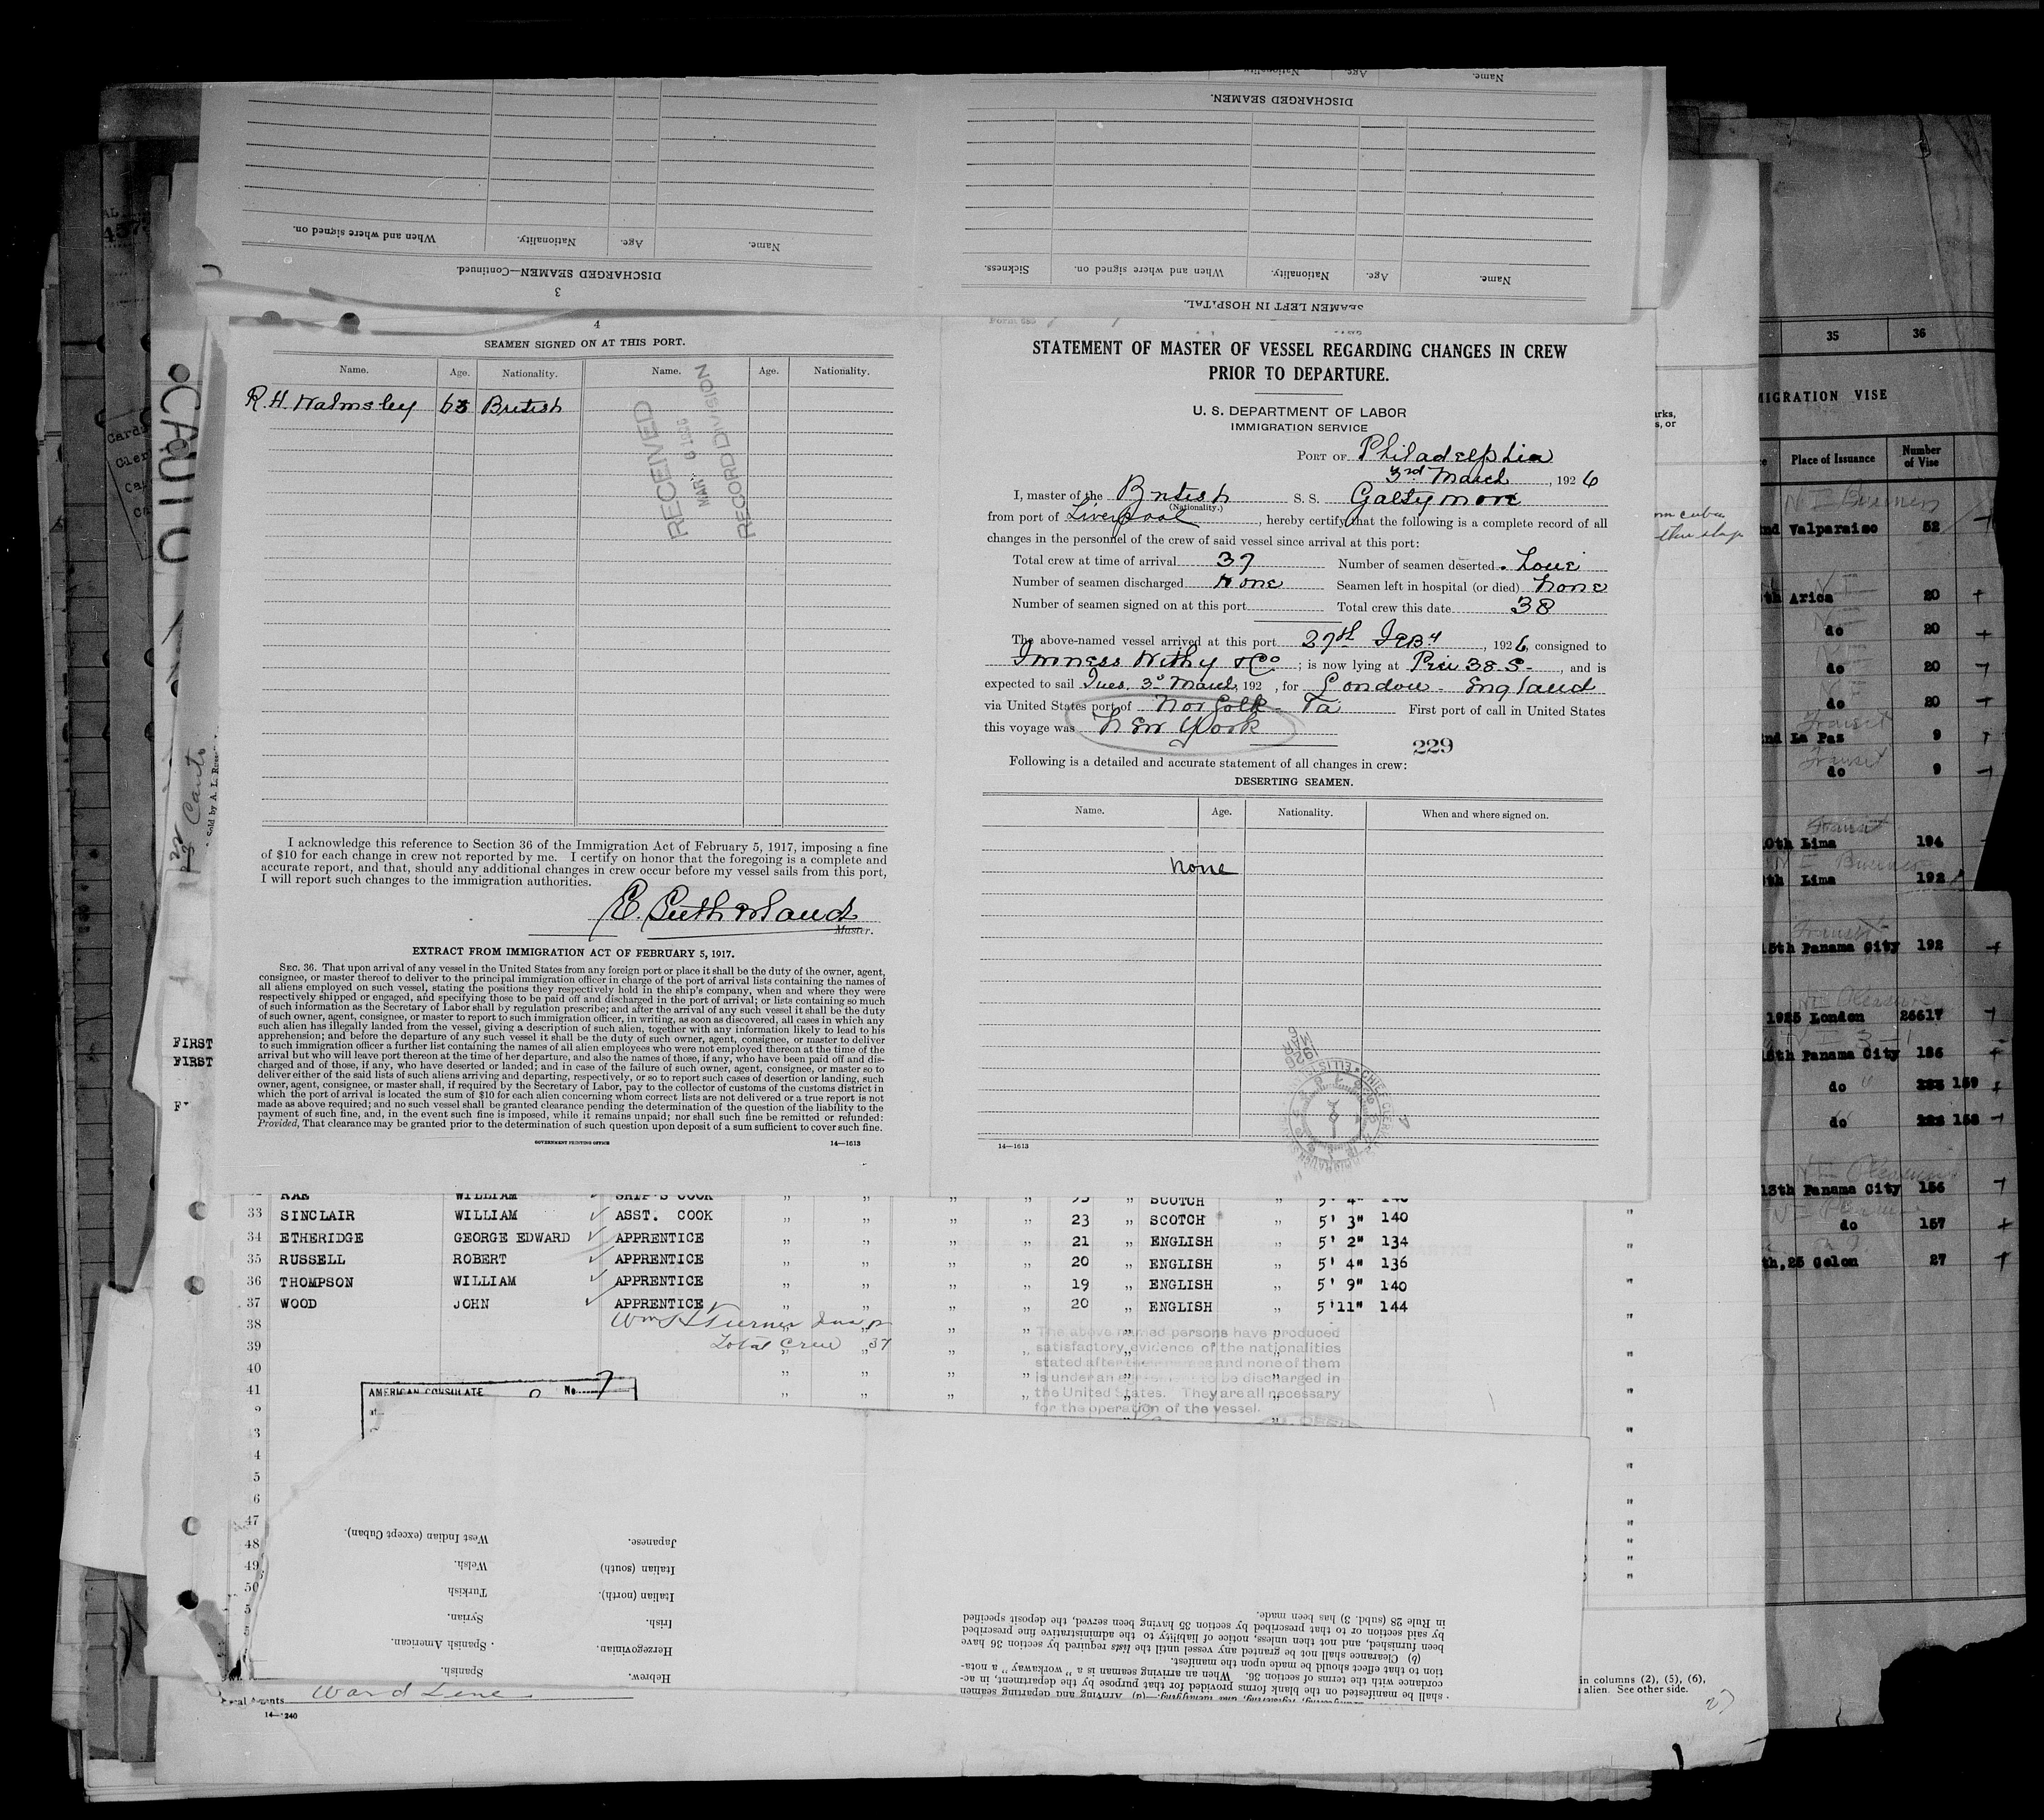 DISCHARGED SEAMEN.
Name.
Age.
Nationality.
When and where signed on.
DISCHARGED SEAMEN—Continued.
3
Name.
Age.
Nationality.
When and where signed on.
Sickness.
SEAMEN LEFT IN HOSPITAL.
4
SEAMEN SIGNED ON AT THIS PORT.
Name. Age. Nationality. Name. Age. Nationality.
R. H. Walmsley 63 British
RECEIVED
MAR. 6 1926
RECORD DIVISION
I acknowledge this reference to Section 36 of the Immigration Act of February 5, 1917, imposing a fine
of $10 for each change in crew not reported by me. I certify on honor that the foregoing is a complete and
accurate report, and that, should any additional changes in crew occur before my vessel sails from this port,
I will report such changes to the immigration authorities.
E. Sutherland
Master.
EXTRACT FROM IMMIGRATION ACT OF FEBRUARY 5, 1917.
SEC. 36. That upon arrival of any vessel in the United States from any foreign port or place it shall be the duty of the owner, agent,
consignee, or master thereof to deliver to the principal immigration officer in charge of the port of arrival lists containing the names of
all aliens employed on such vessel, stating the positions they respectively hold in the ship's company, when and where they were
respectively shipped or engaged, and specifying those to be paid off and discharged in the port of arrival; or lists containing so much
of such information as the Secretary of Labor shall by regulation prescribe; and after the arrival of any such vessel it shall be the duty
of such owner, agent, consignee, or master to report to such immigration officer, in writing, as soon as discovered, all cases in which any
such alien has illegally landed from the vessel, giving a description of such alien, together with any information likely to lead to his
apprehension; and before the departure of any such vessel it shall be the duty of such owner, agent, consignee, or master to deliver
to such immigration officer a further list containing the names of all alien employees who were not employed thereon at the time of the
arrival but who will leave port thereon at the time of her departure, and also the names of those, if any, who have been paid off and dis-
charged and of those, if any, who have deserted or landed; and in case of the failure of such owner, agent, consignee, or master so to
deliver either of the said lists of such aliens arriving and departing, respectively, or so to report such cases of desertion or landing, such
owner, agent, consignee, or master shall, if required by the Secretary of Labor, pay to the collector of customs of the customs district in
which the port of arrival is located the sum of $10 for each alien concerning whom correct lists are not delivered or a true report is not
made as above required; and no such vessel shall be granted clearance pending the determination of the question of the liability to the
payment of such fine, and, in the event such fine is imposed, while it remains unpaid; nor shall such fine be remitted or refunded:
Provided, That clearance may be granted prior to the determination of such question upon deposit of a sum sufficient to cover such fine.
GOVERNMENT PRINTING OFFICE 14—1613
STATEMENT OF MASTER OF VESSEL REGARDING CHANGES IN CREW
PRIOR TO DEPARTURE.
U. S. DEPARTMENT OF LABOR
IMMIGRATION SERVICE
PORT OF Philadelphia
3rd March, 1926
I, master of the British S. S. Galtymore
(Nationality.)
from port of Liverpool, hereby certify that the following is a complete record of all
changes in the personnel of the crew of said vessel since arrival at this port:
Total crew at time of arrival 37 Number of seamen deserted
Number of seamen discharged None Seamen left in hospital (or died) None
Number of seamen signed on at this port Total crew this date 38
The above-named vessel arrived at this port 27th Feby, 1926, consigned to
Furness Withy & Co; is now lying at Pier 38 S, and is
expected to sail Tues. 3d March, 192 , for London - England
via United States port of Norfolk - Va First port of call in United States
this voyage was New York
229
Following is a detailed and accurate statement of all changes in crew:
DESERTING SEAMEN.
Name. Age. Nationality. When and where signed on.
None
14—1613
33 SINCLAIR WILLIAM ASST. COOK 23 SCOTCH 5' 3" 140
34 ETHERIDGE GEORGE EDWARD APPRENTICE 21 ENGLISH 5' 2" 134
35 RUSSELL ROBERT APPRENTICE 20 ENGLISH 5' 4" 136
36 THOMPSON WILLIAM APPRENTICE 19 ENGLISH 5' 9" 140
37 WOOD JOHN APPRENTICE 20 ENGLISH 5'11" 144
38 Wm H Turner
39 Total Crew 37
40
41
The above named persons have produced
satisfactory evidence of the nationalities
stated after their names and none of them
is under an agreement to be discharged in
the United States. They are all necessary
for the operation of the vessel.
AMERICAN CONSULATE No. 7
47
48
49
50
West Indian (except Cuban).
Welsh.
Turkish
Syrian.
Spanish American.
Spanish.
Japanese.
Italian (south)
Italian (north).
Irish.
Herzegovinian.
Hebrew.
shall be manifested on the blank forms provided for that purpose by the department, in ac-
cordance with the terms of section 36. When an arriving seaman is a "workaway" a nota-
tion to that effect should be made upon the manifest.
(b) Clearance shall not be granted any vessel until the lists required by section 36 have
been furnished, and not then unless, notice of liability to the administrative fine prescribed
by said section or to that prescribed by section 35 having been served, the deposit specified
in Rule 28 (subd. 3) has been made.
Ward Line
14—1240
in columns (2), (5), (6),
alien. See other side.
27
FIRST
FIRST
35 36
MIGRATION VISE
Place of Issuance Number of Vise
Valparaiso 52
Arica 20
do 20
do 20
do 20
La Paz 9
do 9
Lima 194
Lima 192
15th Panama City 192
1925 London 26617
Panama City 186
do 159
do 158
13th Panama City 156
do 157
25 Colon 27